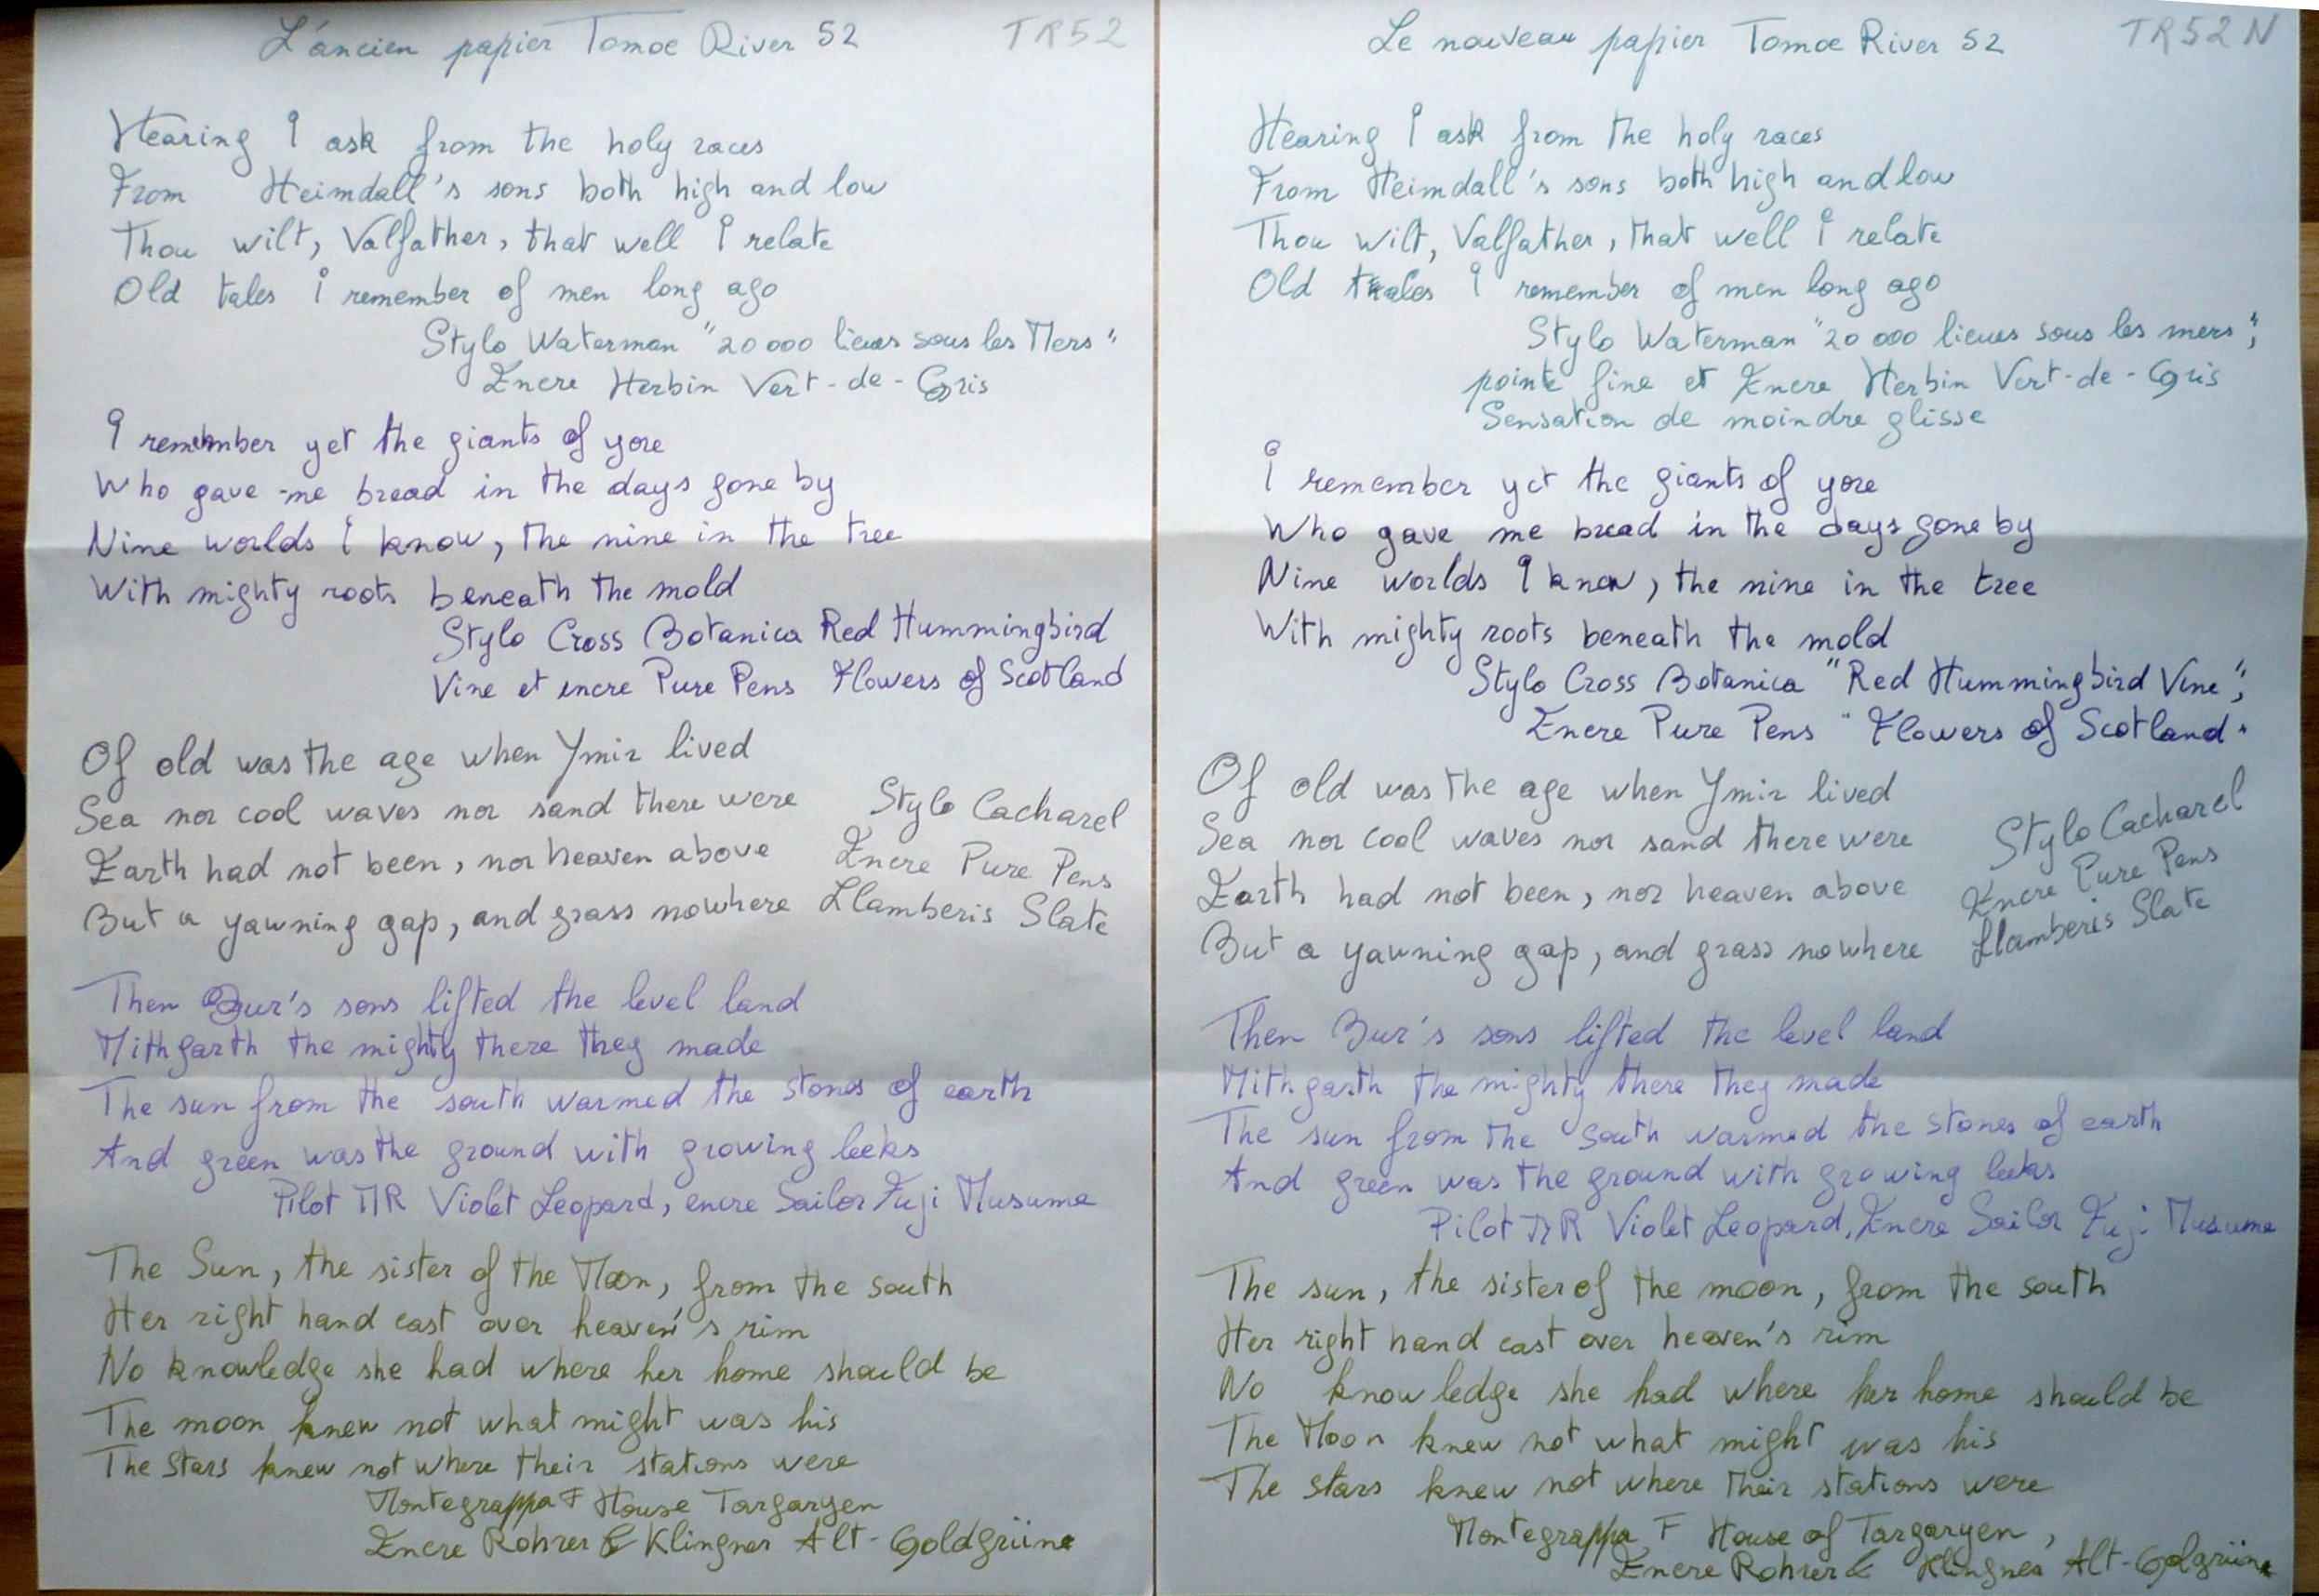 L'ancien papier Tomoe River 52
TR52
Hearing I ask from the holy races
From Heimdall's sons both high and low
Thou wilt, Valfather, that well I relate
Old tales I remember of men long ago
Stylo Waterman "20 000 lieues sous les Mers"
Encre Herbin Vert-de-Gris
I remember yet the giants of yore
Who gave me bread in the days gone by
Nine worlds I know, the nine in the tree
With mighty roots beneath the mold
Stylo Cross Botanica Red Hummingbird
Vine et encre Pure Pens Flowers of Scotland
Of old was the age when Ymir lived
Sea nor cool waves nor sand there were
Earth had not been, nor heaven above
But a yawning gap, and grass nowhere
Stylo Cacharel
Encre Pure Pens
Llamberis Slate
Then Bur's sons lifted the level land
Mithgarth the mighty there they made
The sun from the south warmed the stones of earth
And green was the ground with growing leeks
Pilot MR Violet Leopard, encre Sailor Fuji Musume
The Sun, the sister of the Moon, from the south
Her right hand cast over heaven's rim
No knowledge she had where her home should be
The moon knew not what might was his
The stars knew not where their stations were
Montegrappa F House Targaryen
Encre Rohrer & Klingner Alt-Goldgrüne
Le nouveau papier Tomoe River 52
TR52 N
Hearing I ask from the holy races
From Heimdall's sons both high and low
Thou wilt, Valfather, that well I relate
Old tales I remember of men long ago
Stylo Waterman "20 000 lieues sous les mers",
pointe fine et Encre Herbin Vert-de-Gris
Sensation de moindre glisse
I remember yet the giants of yore
Who gave me bread in the days gone by
Nine worlds I know, the nine in the tree
With mighty roots beneath the mold
Stylo Cross Botanica "Red Hummingbird Vine",
Encre Pure Pens "Flowers of Scotland"
Of old was the age when Ymir lived
Sea nor cool waves nor sand there were
Earth had not been, nor heaven above
But a yawning gap, and grass nowhere
Stylo Cacharel
Encre Pure Pens
Llamberis Slate
Then Bur's sons lifted the level land
Mithgarth the mighty there they made
The sun from the south warmed the stones of earth
And green was the ground with growing leeks
Pilot MR Violet Leopard, Encre Sailor Fuji Musume
The sun, the sister of the moon, from the south
Her right hand cast over heaven's rim
No knowledge she had where her home should be
The Moon knew not what might was his
The stars knew not where their stations were
Montegrappa F House of Targaryen,
Encre Rohrer & Klingner Alt-Golgrüne